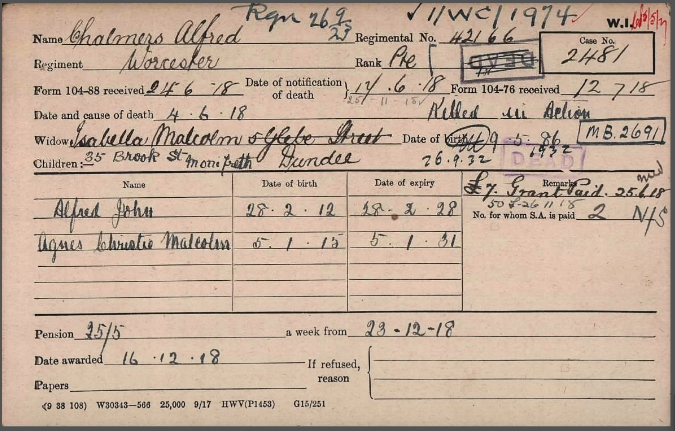 Rgn 26.9.23 11/WC/1974 W.I.
Name Chalmers Alfred Regimental No. 42166 Case No. 2481
Regiment Worcester Rank Pte DEAD
Form 104-88 received 24 6 18 Date of notification of death 14 .6 .18 Form 104-76 received 12 7 18
25-11-18
Date and cause of death 4 . 6 . 18 Killed in Action
Widow Isabella Malcolm 5 Glebe Street Date of birth 9 . 5 . 86 M.B.2691
Children:— 35 Brook St Monifieth Dundee 26.9.32 DEAD 1932
Name Date of birth Date of expiry Remarks
£7. Grant Paid. 25.6.18
50/- 26 11 18
Alfred John 28 . 2 . 12 28 . 2 . 28 No. for whom S.A. is paid 2 N/S
Agnes Christie Malcolm 5 . 1 . 15 5 . 1 . 31
Pension 25/5 a week from 23-12-18
Date awarded 16 . 12 . 18 If refused, reason
Papers
(9 38 108) W30343—566 25,000 9/17 HWV(P1453) G15/251